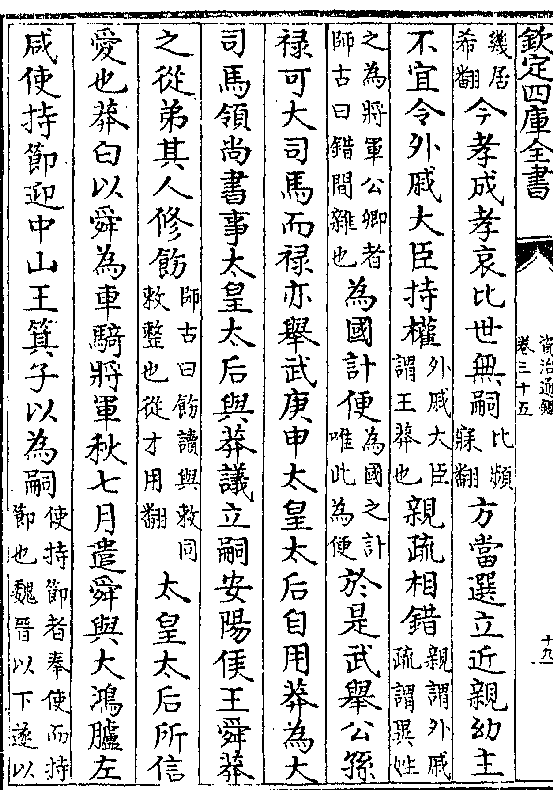 欽定四庫全書
資治通鑑
卷三十五
十九
幾居希翻今孝成孝哀比世無嗣比頻寐翻方當選立近親幼主
不宜令外戚大臣持權外戚大臣謂王莽也親疏相錯親謂外戚疏謂異姓
之為將軍公卿者師古曰錯間雜也為國計便為國之計唯此為便於是武舉公孫
禄可大司馬而禄亦舉武庚申太皇太后自用莽為大
司馬領尚書事太皇太后與莽議立嗣安陽侯王舜莽
之從弟其人修飭師古曰飭讀與敕同敕整也從才用翻太皇太后所信
愛也莽白以舜為車騎將軍秋七月遣舜與大鴻臚左
咸使持節迎中山王箕子以為嗣使持節者奉使而持節也魏晉以下遂以